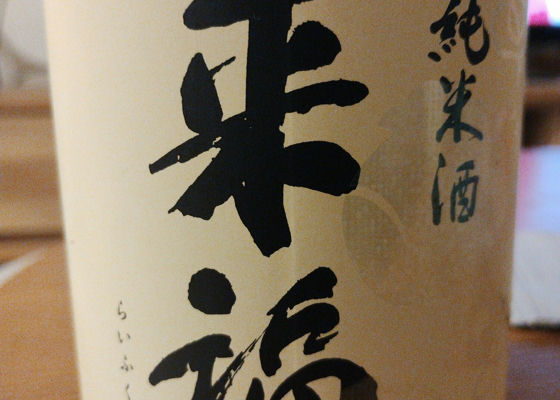 純米酒
来福
らいふく